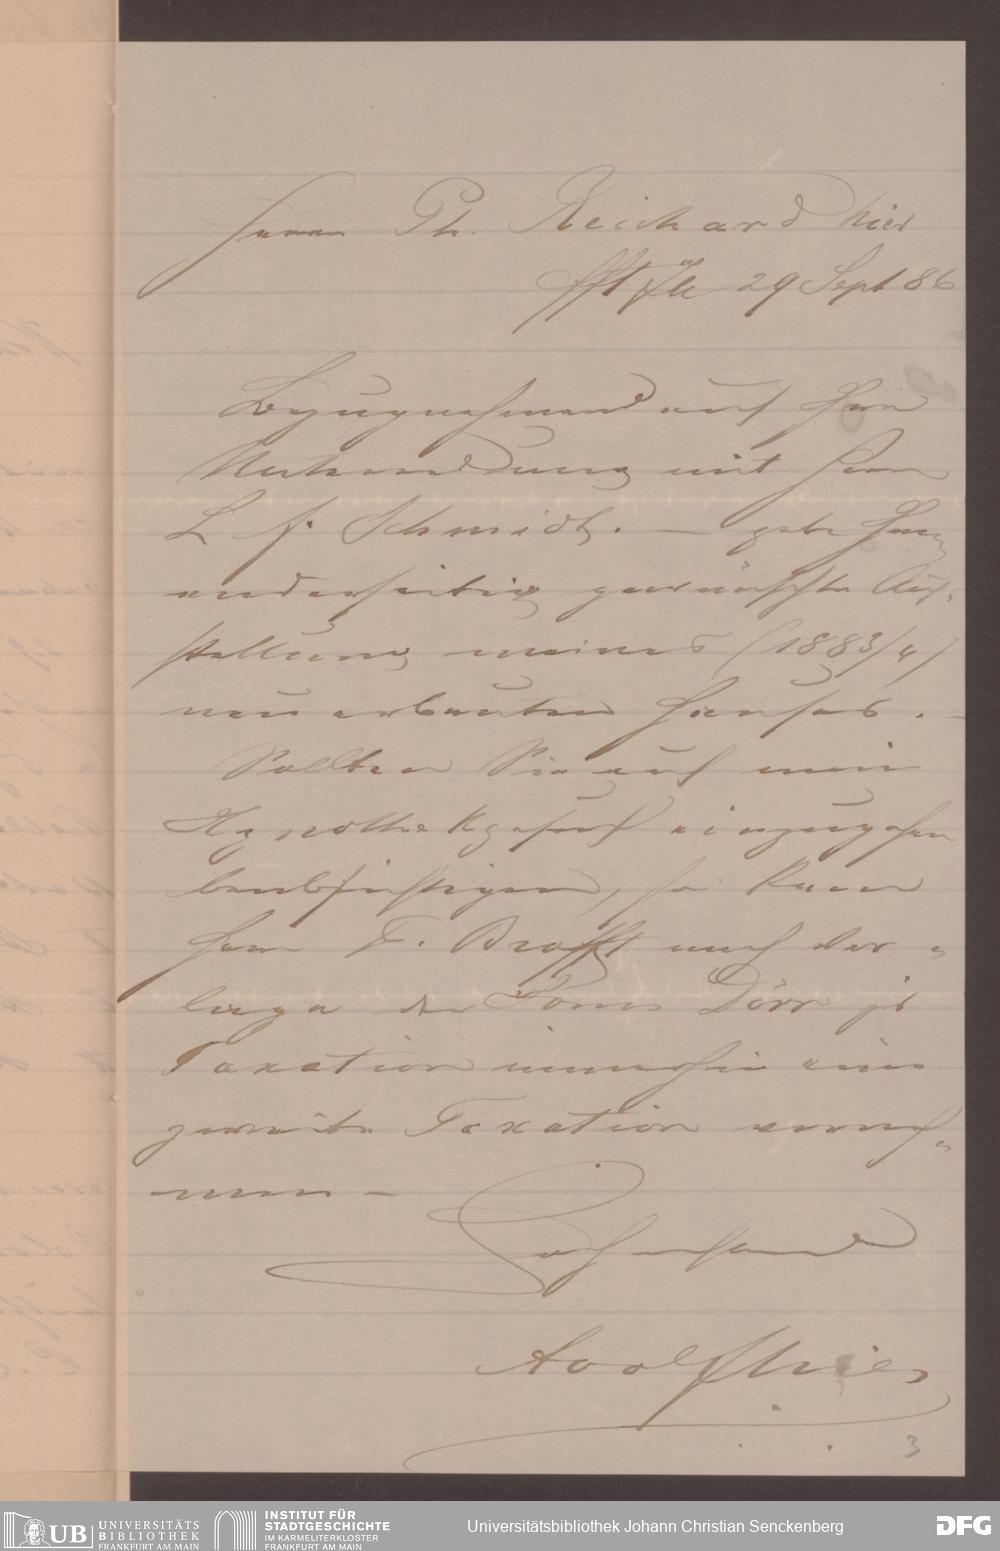 Herrn Ph. Reichard hier
Ffft a/M 29 Sept 86
Bezugnehmend auf Ihre
Unterredung mit Herrn
L. J. Schmidt. — gebe Ihnen
anderseitig gewünschte Auf-
stellung meines (1883/4)
neu erbauten Hauses. —
Sollten Sie auf mein
Hypothekgesuch einzugehen
beabsichtigen, so kann
Herr F. Brofft nach Vor-
lage der Dörr
Taxation immerhin eine
zweite Taxation vorneh-
men —
Achtend
Adolf
3
UB UNIVERSITÄTS
BIBLIOTHEK
FRANKFURT AM MAIN
INSTITUT FÜR
STADTGESCHICHTE
IM KARMELITERKLOSTER
FRANKFURT AM MAIN
Universitätsbibliothek Johann Christian Senckenberg
DFG